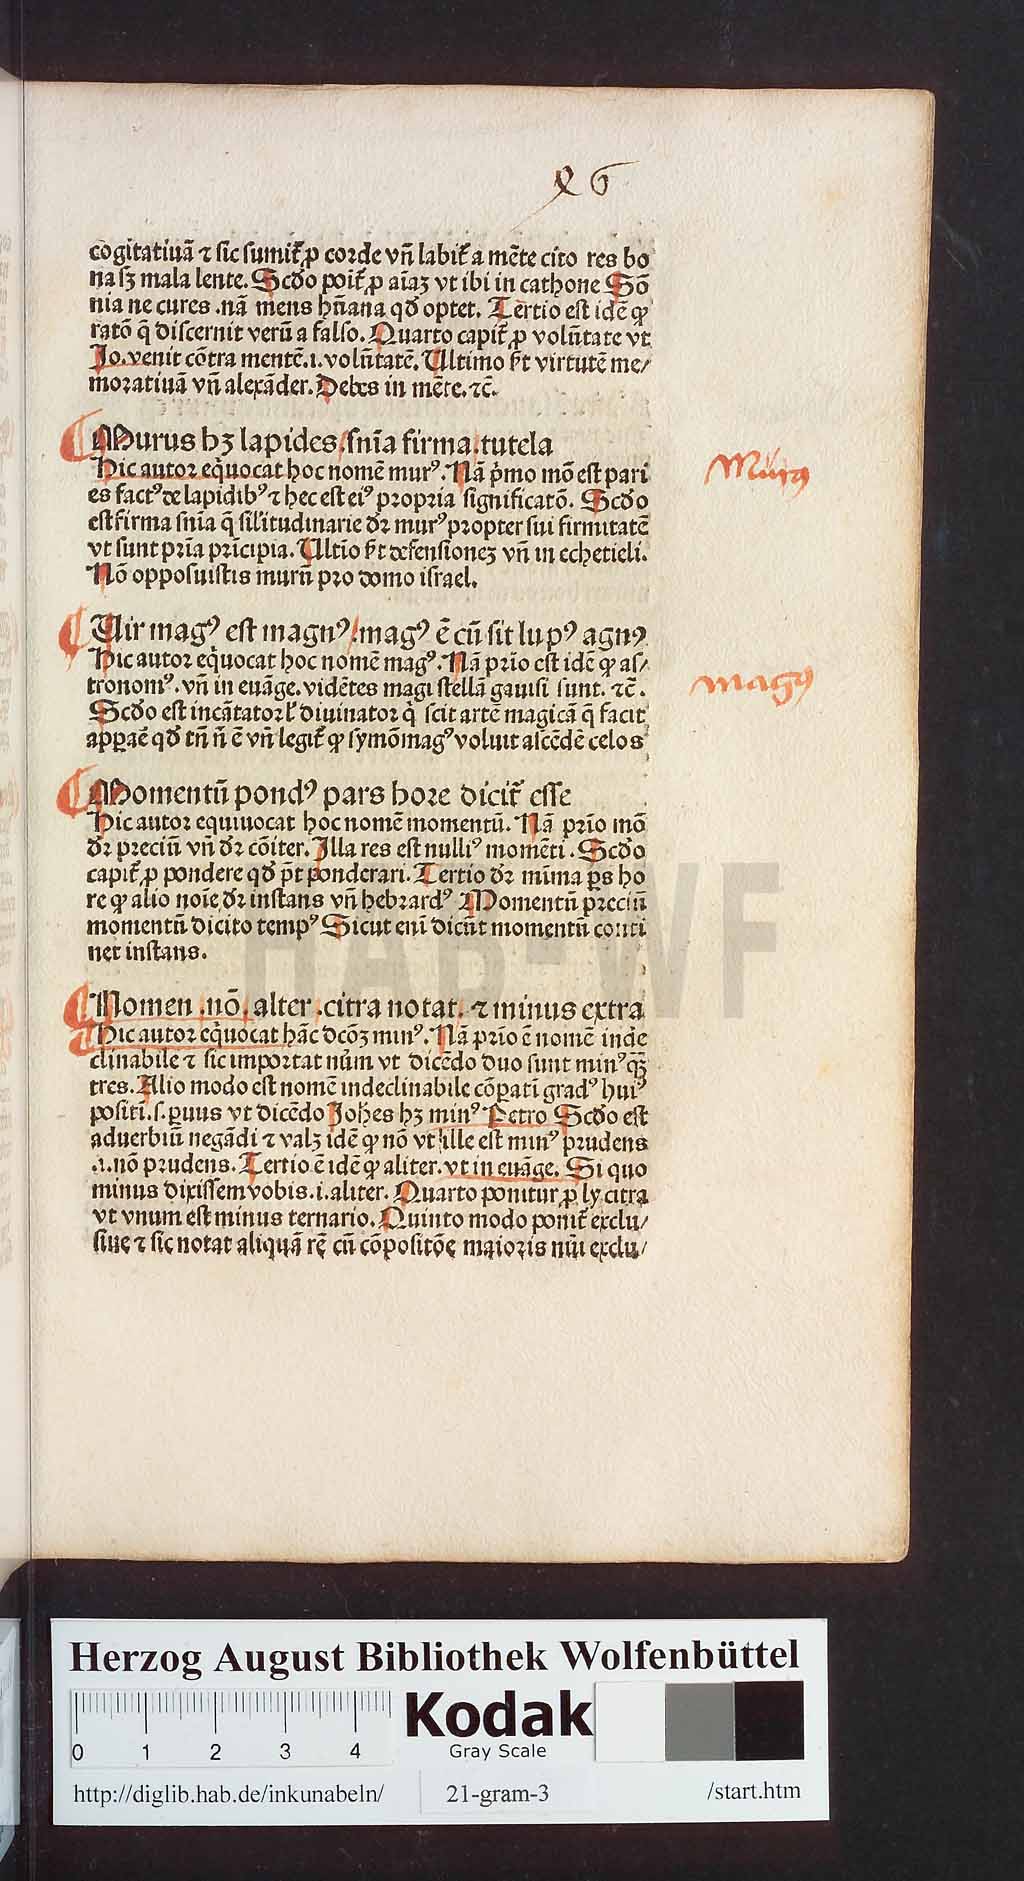 x6
cogitatiuā ⁊ sic sumit᷑ ꝓ corde vn̄ labit᷑ a mēte cito res bo
na sꝫ mala lente. Scd̓o poit᷑ ꝓ aīaꝫ vt ibi in cathone Sō
nia ne cures .nā mens hn̄ana qd̓ optet. Tertio est idē ꝙ
ratō q̄ discernit verū a falso. Quarto capit᷑ ꝓ volūtate vt
Jo. venit cōtra mentē.i. volūtatē. Ultimo hꝛt virtutē me/
moratiuā vn̄ alexāder. Debes in mēte. ⁊c̄.
Murus hꝫ lapides/ snīa firma. tutela
Hic autor eq̇uocat hoc nomē murꝰ. Nā p̓mo mō est pari
es factꝰ de lapidibꝰ ⁊ hec est eiꝰ propria significatō. Scd̓o
est firma snīa q̄ sil̓itudinarie dr̄ murꝰ propter sui firmitatē
vt sunt pria principia. Ultio hꝛt defensioneꝫ vn̄ in echetieli.
Nō opposuistis murū pro domo israel.
Murꝰ
Uir magꝰ est magnꝰ/ magꝰ ē cū sit lupꝰ agnꝰ
Hic autor eq̇uocat hoc nomē magꝰ. Nā prīo est idē ꝙ as/
tronomꝰ. vn̄ in euāge. vidētes magi stellā gauisi sunt. ⁊c̄.
Scd̓o est incātator l̓ diuinator q̇ scit artē magicā q̄ facit
apꝑaē qd̓ tn̄ n̄ ē vn̄ legit᷑ ꝙ symō magꝰ voluit ascēdē celos
magꝰ
Momentū pondꝰ pars hore dicit᷑ esse
Hic autor equiuocat hoc nomē momentū. Nā prīo mō
dr̄ preciū vn̄ dr̄ cōiter. Illa res est nulliꝰ momēti. Scd̓o
capit᷑ ꝓ pondere qd̓ pt̄ ponderari. Tertio dr̄ mīma ꝑs ho
re ꝙ alio noīe dr̄ instans vn̄ hebrardꝰ Momentū preciū
momentū dicito tempꝰ Sicut enī dicūt momentū conti
net instans.
Nomen .nō. alter .citra notat. ⁊ minus extra
Hic autor eq̇uocat hāc dcōꝫ minꝰ. Nā prīo ē nomē inde
clinabile ⁊ sic importat nūm vt dicēdo duo sunt minꝰ qꝫ̄
tres. Alio modo est nomē indeclinabile cōpati gradꝰ huiꝰ
positi.s. ꝑuus vt dicēdo Joh̄es hꝫ minꝰ Petro Scd̓o est
aduerbiū negādi ⁊ valꝫ idē ꝙ nō vt ille est minꝰ prudens
.i. nō prudens. Tertio ē idē ꝙ aliter. vt in euāge. Si quo
minus dixissem vobis. i. aliter. Quarto ponitur ꝓ ly citra
vt vnum est minus ternario. Quinto modo ponit᷑ exclu/
siue ⁊ sic notat aliquā rē cū cōpositōe maioris nūi exclu/
HAB-WF
Herzog August Bibliothek Wolfenbüttel
0 1 2 3 4
Kodak
Gray Scale
http://diglib.hab.de/inkunabeln/ 21-gram-3 /start.htm